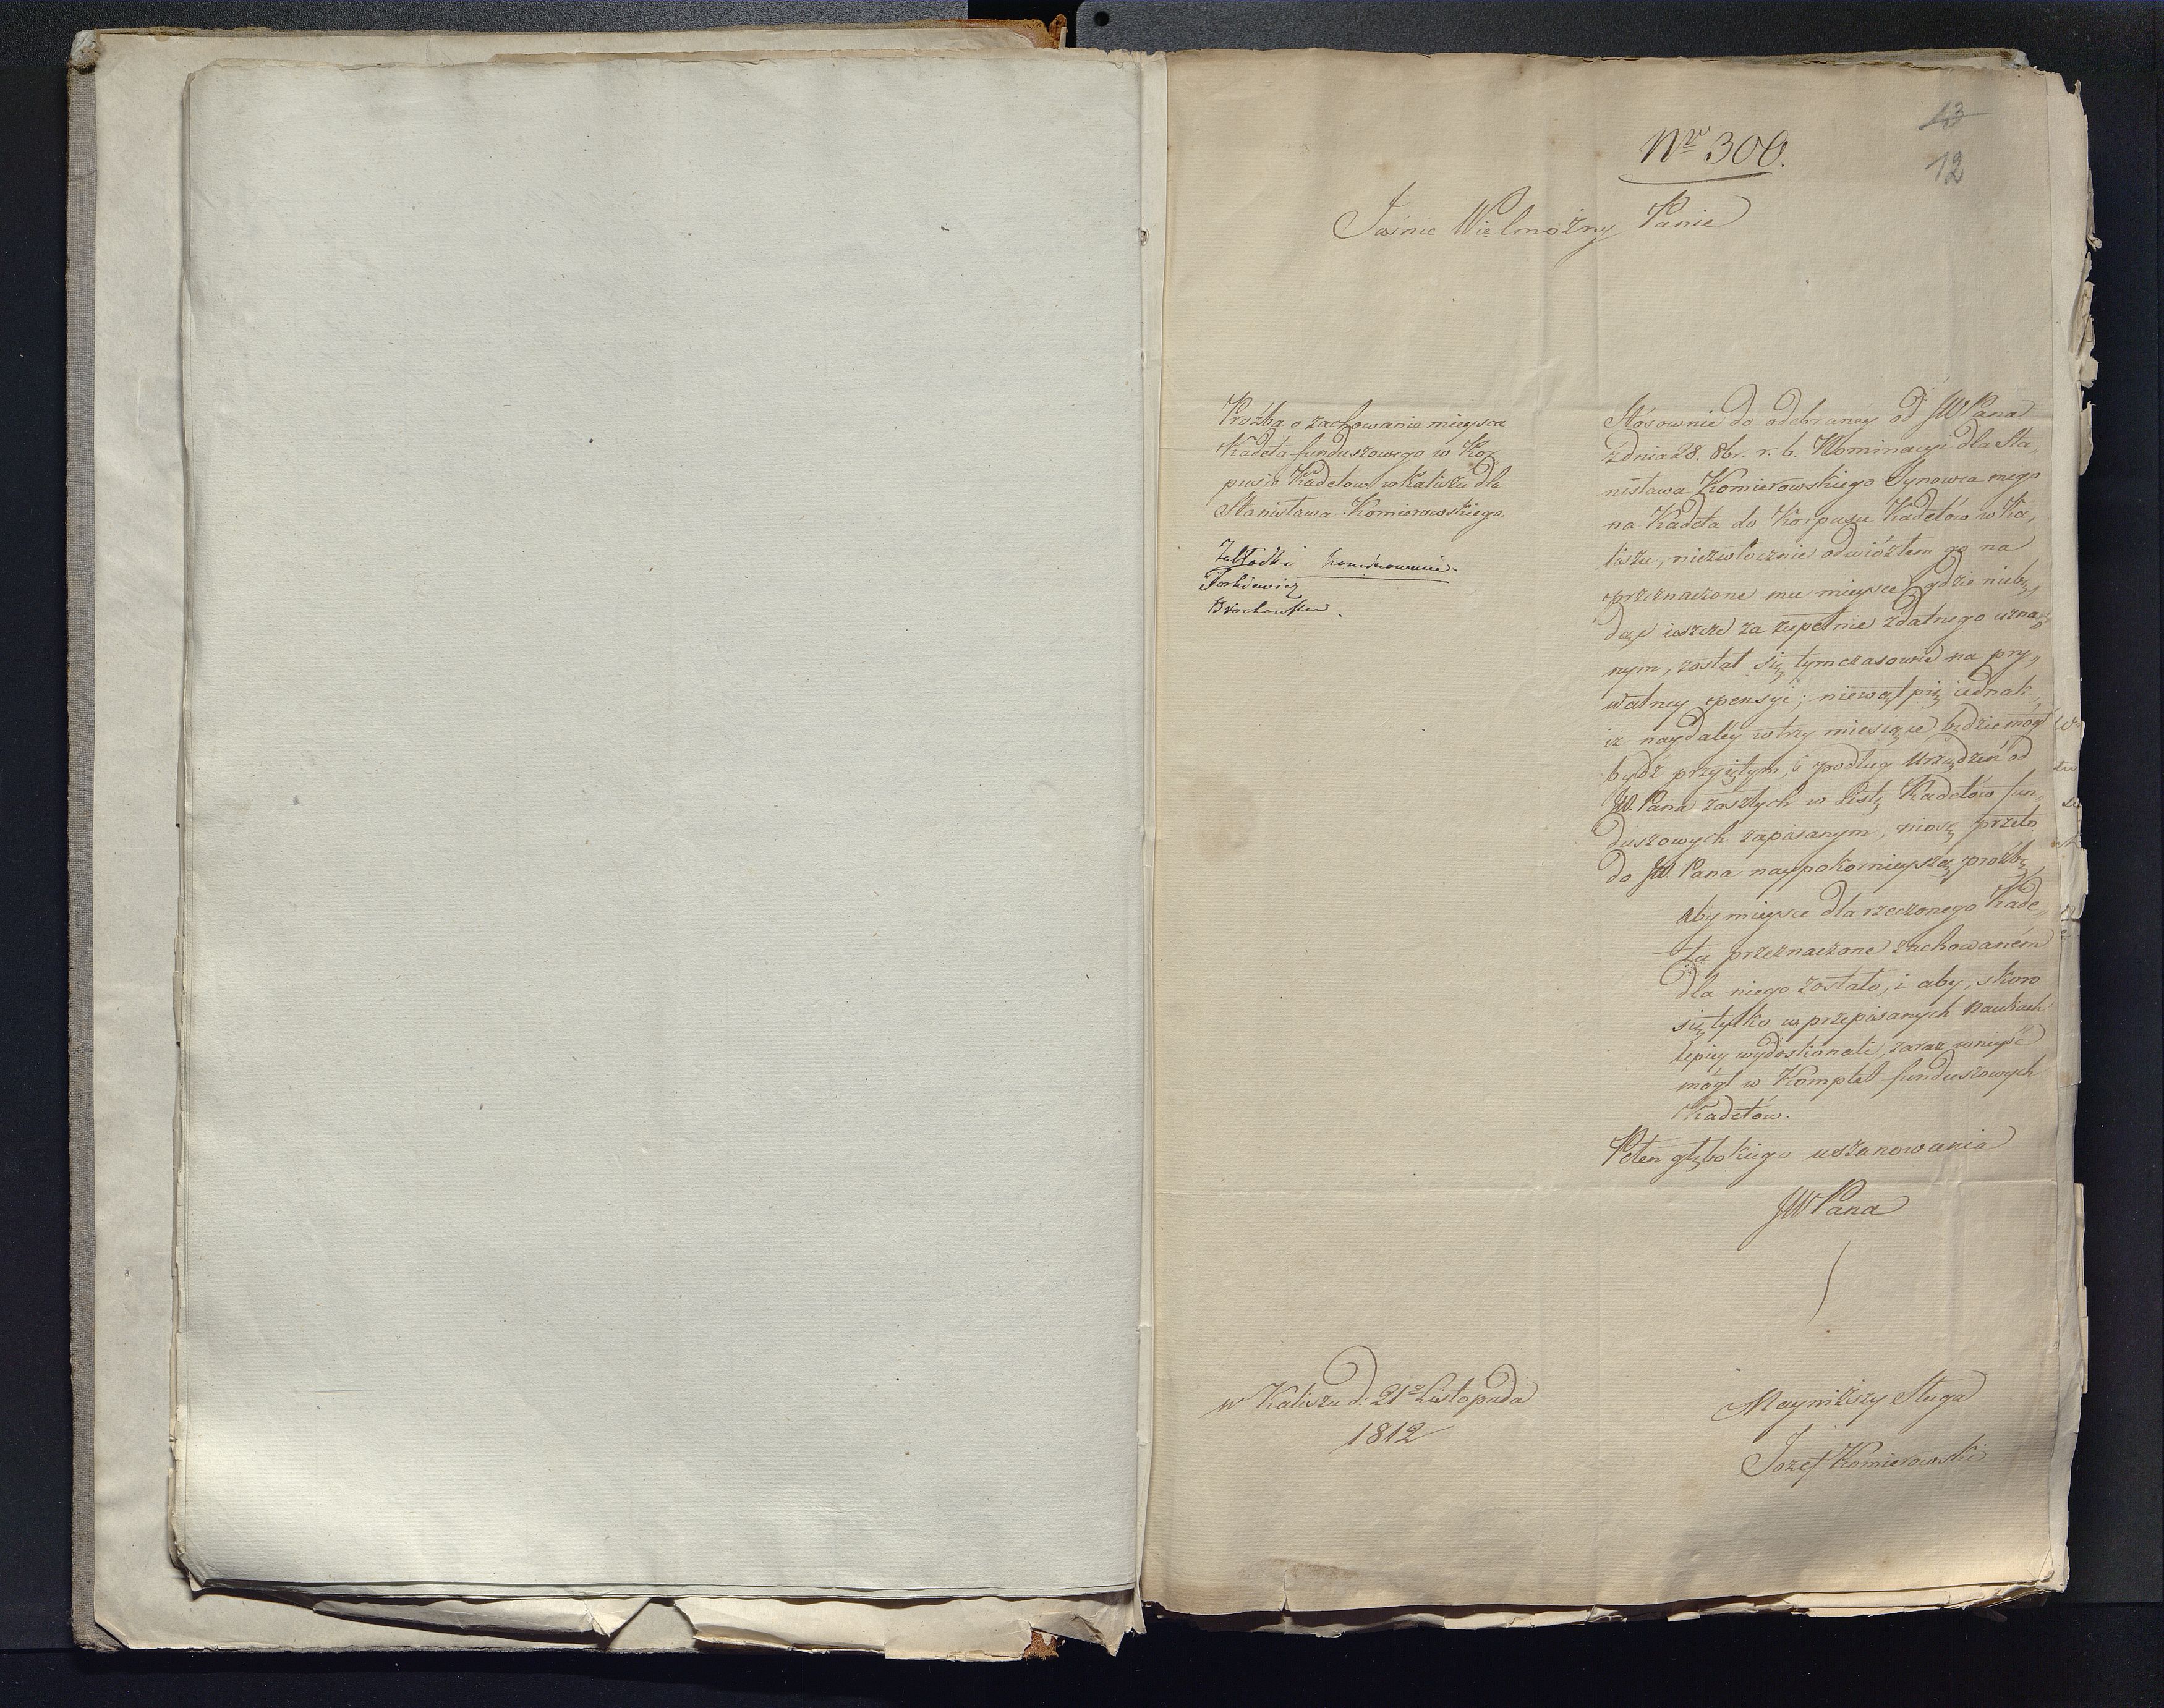 13
Nro 300.
12
Jaśnie Wielmożny Panie
Prozba o zachowanie mieysca
Kadeta funduszowego w Kor
pusie Kadetow w Kaliszu dla
Stanisława Komierowskiego.
Stósownie do odebraney od JWPana
z dnia 28. 8br. r. b. Nominacyi dla Sta„
nisława Komierowskiego Synowca mego
na Kadeta do Korpusu Kadetów w Ka„
liszu, niezwłocznie odwiózłem go na
przeznaczone mu mieysce, gdzie niebę„
dąc ieszcze za zupełnie zdatnego uzna„
nym, został się tymczasowie na pry„
watney pensyi; niewątpię iednak,
iż naydaléy w trzy miesiące będzie mógł
bydź przyiętym, i podług Urządzeń od
JW. Pana zaszłych w Listę Kadetów fun„
duszowych zapisanym, niosę przeto
do JW. Pana naypokornieyszą prozbę,
aby mieysce dla rzeczonego Kade„
ta przeznaczone zachowaném
dla niego zostało, i aby, skoro
się tylko w przepisanych Naukach
lepiey wydoskonali, zaraz wnieyść
mógł w Komplet funduszowych
Kadetów.
Pełen głębokiego uszanowania
JWPana
w Kaliszu d. 21o Listopada
1812
Nayniższy Sługa
Jozef Komierowski